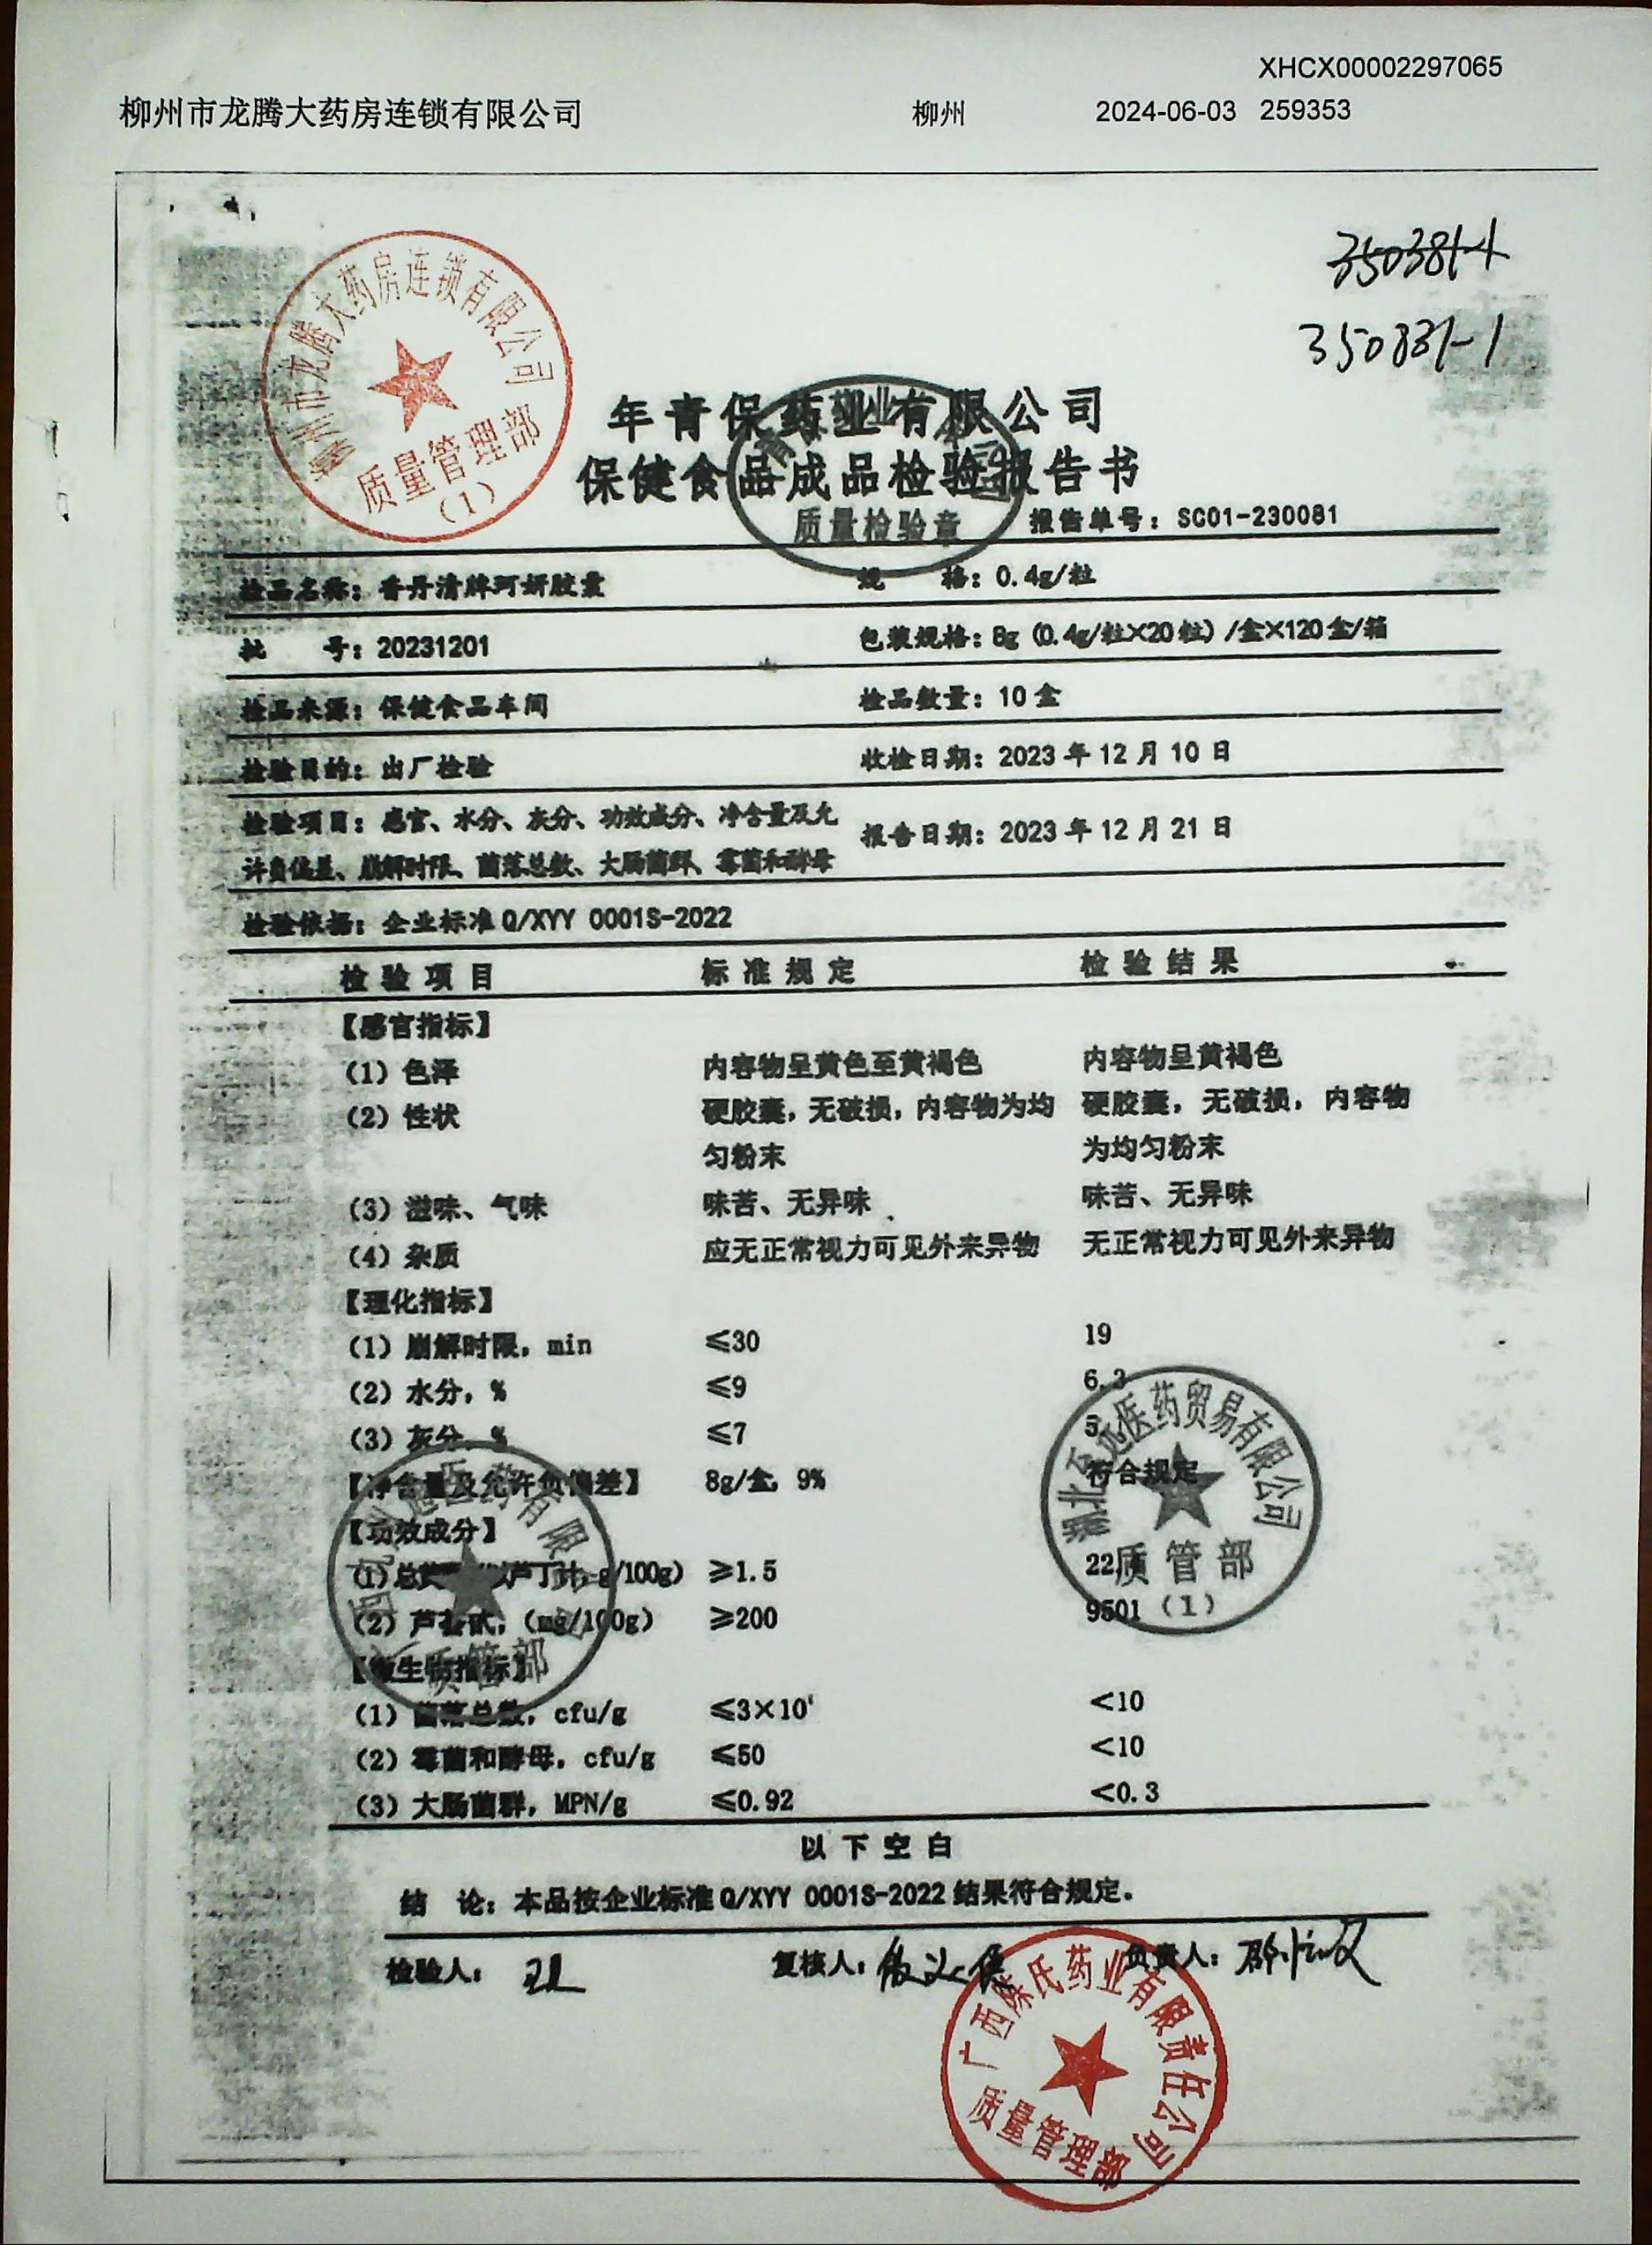 XHCX00002297065
柳州市龙腾大药房连锁有限公司 柳州 2024-06-03 259353
350831-1
柳州市龙腾大药房连锁有限公司
质量管理部
(1)
年青保药业有限公司
保健食品成品检验报告书
质量检验章
报告单号：SC01-230081
检品名称：香丹清牌珂妍胶囊 规 格：0.4g/粒
批 号：20231201 包装规格：8g（0.4g/粒×20粒）/盒×120盒/箱
检品来源：保健食品车间 检品数量：10盒
检验目的：出厂检验 收检日期：2023年12月10日
检验项目：感官、水分、灰分、功效成分、净含量及允
许负偏差、崩解时限、菌落总数、大肠菌群、霉菌和酵母
报告日期：2023年12月21日
检验依据：企业标准Q/XYY 0001S-2022
检验项目 标准规定 检验结果
【感官指标】
（1）色泽 内容物呈黄色至黄褐色 内容物呈黄褐色
（2）性状 硬胶囊，无破损，内容物为均 硬胶囊，无破损，内容物
匀粉末 为均匀粉末
（3）滋味、气味 味苦、无异味 味苦、无异味
（4）杂质 应无正常视力可见外来异物 无正常视力可见外来异物
【理化指标】
（1）崩解时限，min ≤30 19
（2）水分，% ≤9 6.3
（3）灰分，% ≤7
【净含量及允许负偏差】 8g/盒，9% 符合规定
【功效成分】
（1）总 芦丁计，g/100g） ≥1.5 22
（2）芦荟甙，（mg/100g） ≥200 9501
【微生物指标】
（1）菌落总数，cfu/g ≤3×10 <10
（2）霉菌和酵母，cfu/g ≤50 <10
（3）大肠菌群，MPN/g ≤0.92 <0.3
医药贸易有限公司
质管部
（1）
医药有限
质管部
以下空白
结 论：本品按企业标准Q/XYY 0001S-2022结果符合规定。
检验人： 复核人： 负责人：
广西陈氏药业有限责任公司
质量管理部